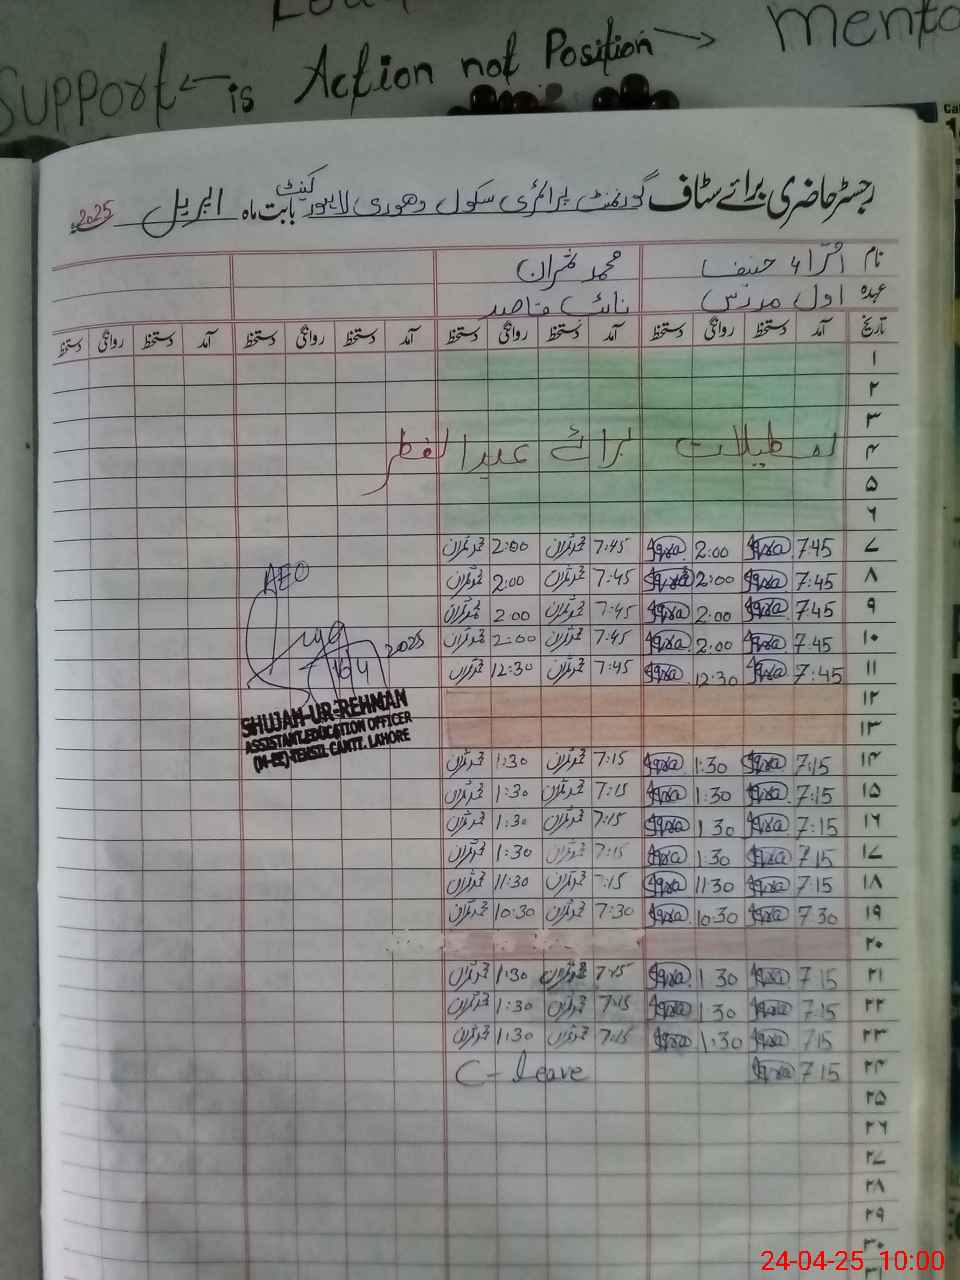 Support ← is Action not Position → menta
رجسٹر حاضری برائے سٹاف گورنمنٹ پرائمری سکول دھوری لاہور کینٹ بابت ماہ اپریل 2025ء
نام اقراء حنیف محمد عمران
عہدہ اول مدرس نائب قاصد
تاریخ آمد دستخط روانگی دستخط آمد دستخط روانگی دستخط آمد دستخط روانگی دستخط آمد دستخط روانگی دستخط
۱
۲
۳
تعطیلات برائے عیدالفطر
۴
۵
۶
۷ 7:45 Iqra 2:00 Iqra 7:45 محمد عمران 2:00 محمد عمران
۸ 7:45 Iqra 2:00 Iqra 7:45 محمد عمران 2:00 محمد عمران
AEO
۹ 7:45 Iqra 2:00 Iqra 7:45 محمد عمران 2:00 محمد عمران
۱۰ 7:45 Iqra 2:00 Iqra 7:45 محمد عمران 2:00 محمد عمران
2025
۱۱ 7:45 Iqra 12:30 Iqra 7:45 محمد عمران 12:30 محمد عمران
۱۲
۱۳
SHUJAH-UR-REHMAN
ASSISTANT EDUCATION OFFICER
(M-EE) TEHSIL CANTT. LAHORE
۱۴ 7:15 Iqra 1:30 Iqra 7:15 محمد عمران 1:30 محمد عمران
۱۵ 7:15 Iqra 1:30 Iqra 7:15 محمد عمران 1:30 محمد عمران
۱۶ 7:15 Iqra 1:30 Iqra 7:15 محمد عمران 1:30 محمد عمران
۱۷ 7:15 Iqra 1:30 Iqra 7:15 محمد عمران 1:30 محمد عمران
۱۸ 7:15 Iqra 11:30 Iqra 7:15 محمد عمران 11:30 محمد عمران
۱۹ 7:30 Iqra 10:30 Iqra 7:30 محمد عمران 10:30 محمد عمران
۲۰
۲۱ 7:15 Iqra 1:30 Iqra 7:15 محمد عمران 1:30 محمد عمران
۲۲ 7:15 Iqra 1:30 Iqra 7:15 محمد عمران 1:30 محمد عمران
۲۳ 7:15 Iqra 1:30 Iqra 7:15 محمد عمران 1:30 محمد عمران
۲۴ 7:15 Iqra C-leave
۲۵
۲۶
۲۷
۲۸
۲۹
۳۰
۳۱
24-04-25 10:00